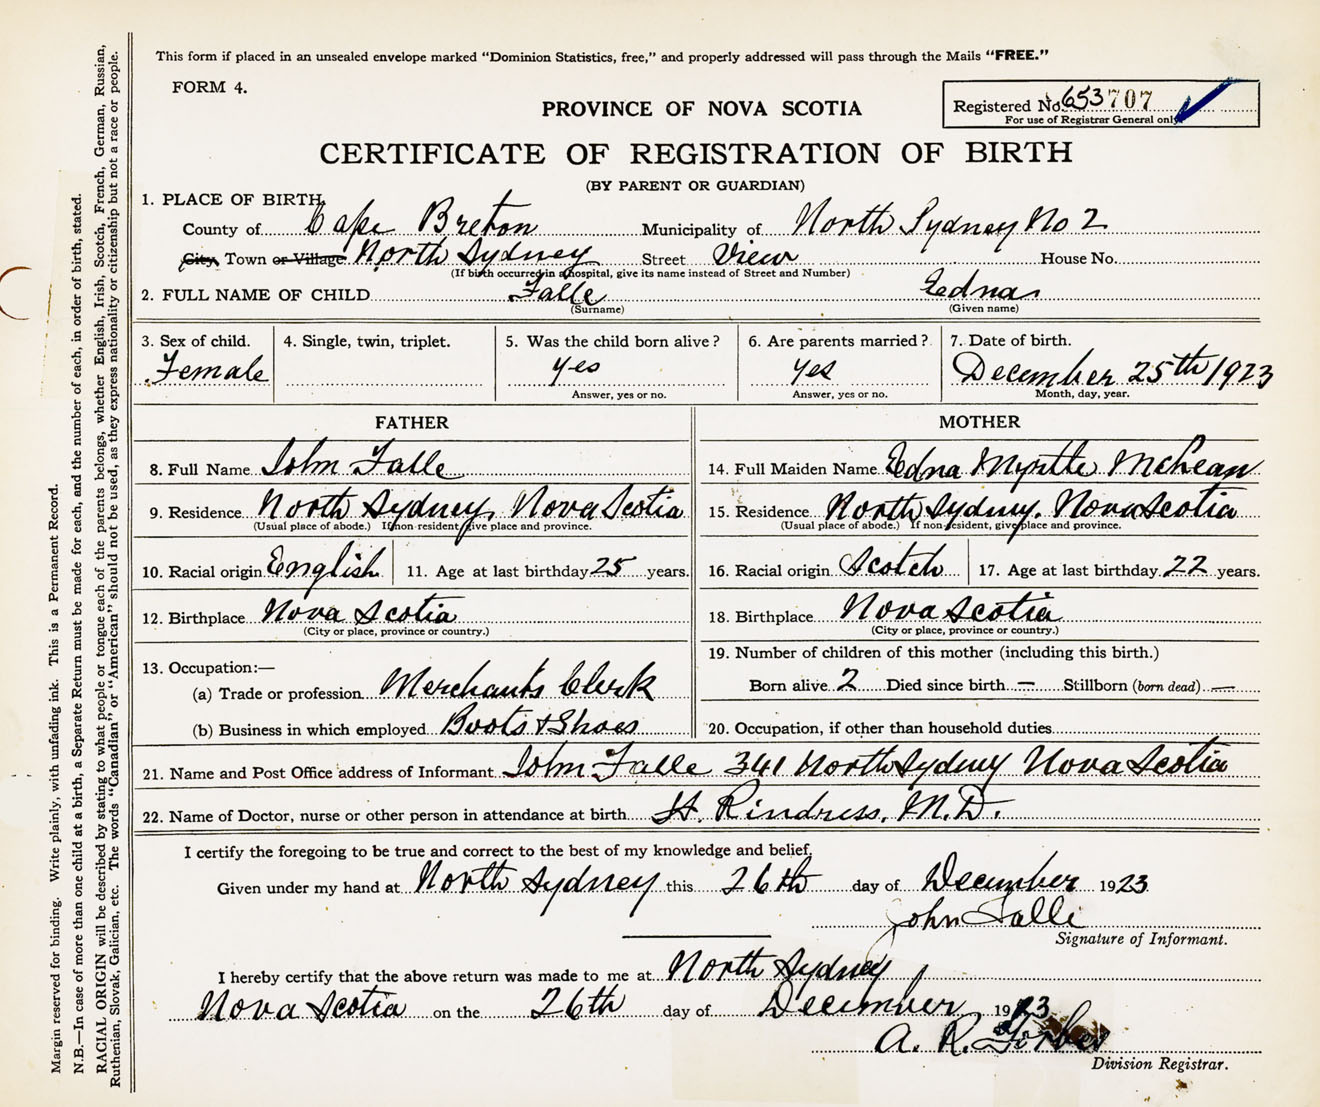 This form if placed in an unsealed envelope marked "Dominion Statistics, free," and properly addressed will pass through the Mails "FREE."
FORM 4.
PROVINCE OF NOVA SCOTIA
Registered No. 653707
For use of Registrar General only
CERTIFICATE OF REGISTRATION OF BIRTH
(BY PARENT OR GUARDIAN)
1. PLACE OF BIRTH,
County of Cape Breton Municipality of North Sydney No 2
City, Town or Village North Sydney Street View House No.
(If birth occurred in a hospital, give its name instead of Street and Number)
2. FULL NAME OF CHILD Falle Edna
(Surname) (Given name)
3. Sex of child. 4. Single, twin, triplet. 5. Was the child born alive? 6. Are parents married? 7. Date of birth.
Female yes yes December 25th/1923
Answer, yes or no. Answer, yes or no. Month, day, year.
FATHER MOTHER
8. Full Name John Falle 14. Full Maiden Name Edna Myrtle McLean
9. Residence North Sydney, Nova Scotia 15. Residence North Sydney, Nova Scotia
(Usual place of abode.) If non-resident, give place and province. (Usual place of abode.) If non-resident, give place and province.
10. Racial origin English 11. Age at last birthday 25 years. 16. Racial origin Scotch 17. Age at last birthday 22 years.
12. Birthplace Nova Scotia 18. Birthplace Nova Scotia
(City or place, province or country.) (City or place, province or country.)
13. Occupation:— 19. Number of children of this mother (including this birth.)
(a) Trade or profession Merchants Clerk Born alive 2 Died since birth — Stillborn (born dead) —
(b) Business in which employed Boots & Shoes 20. Occupation, if other than household duties
21. Name and Post Office address of Informant John Falle 341 North Sydney Nova Scotia
22. Name of Doctor, nurse or other person in attendance at birth H. Rindress, M.D.
I certify the foregoing to be true and correct to the best of my knowledge and belief.
Given under my hand at North Sydney this 26th day of December 1923
John Falle
Signature of Informant.
I hereby certify that the above return was made to me at North Sydney
Nova Scotia on the 26th day of December 1923
A. R. Forbes
Division Registrar.
Margin reserved for binding. Write plainly, with unfading ink. This is a Permanent Record.
N.B.—In case of more than one child at a birth, a Separate Return must be made for each, and the number of each, in order of birth, stated.
RACIAL ORIGIN will be described by stating to what people or tongue each of the parents belongs, whether English, Irish, Scotch, French, German, Russian,
Ruthenian, Slovak, Galician, etc. The words "Canadian" or "American" should not be used, as they express nationality or citizenship but not a race or people.